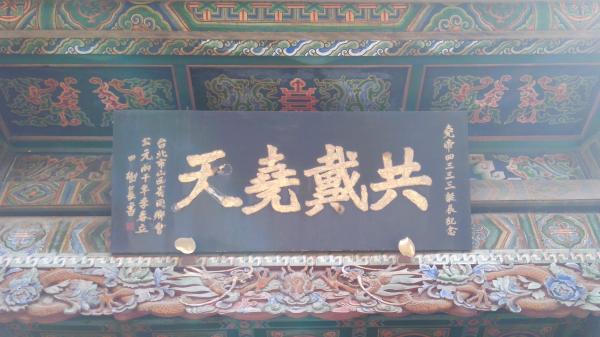 堯帝四三三三誕辰紀念
共戴堯天
台北市山西省同鄉會
公元两千年季春立